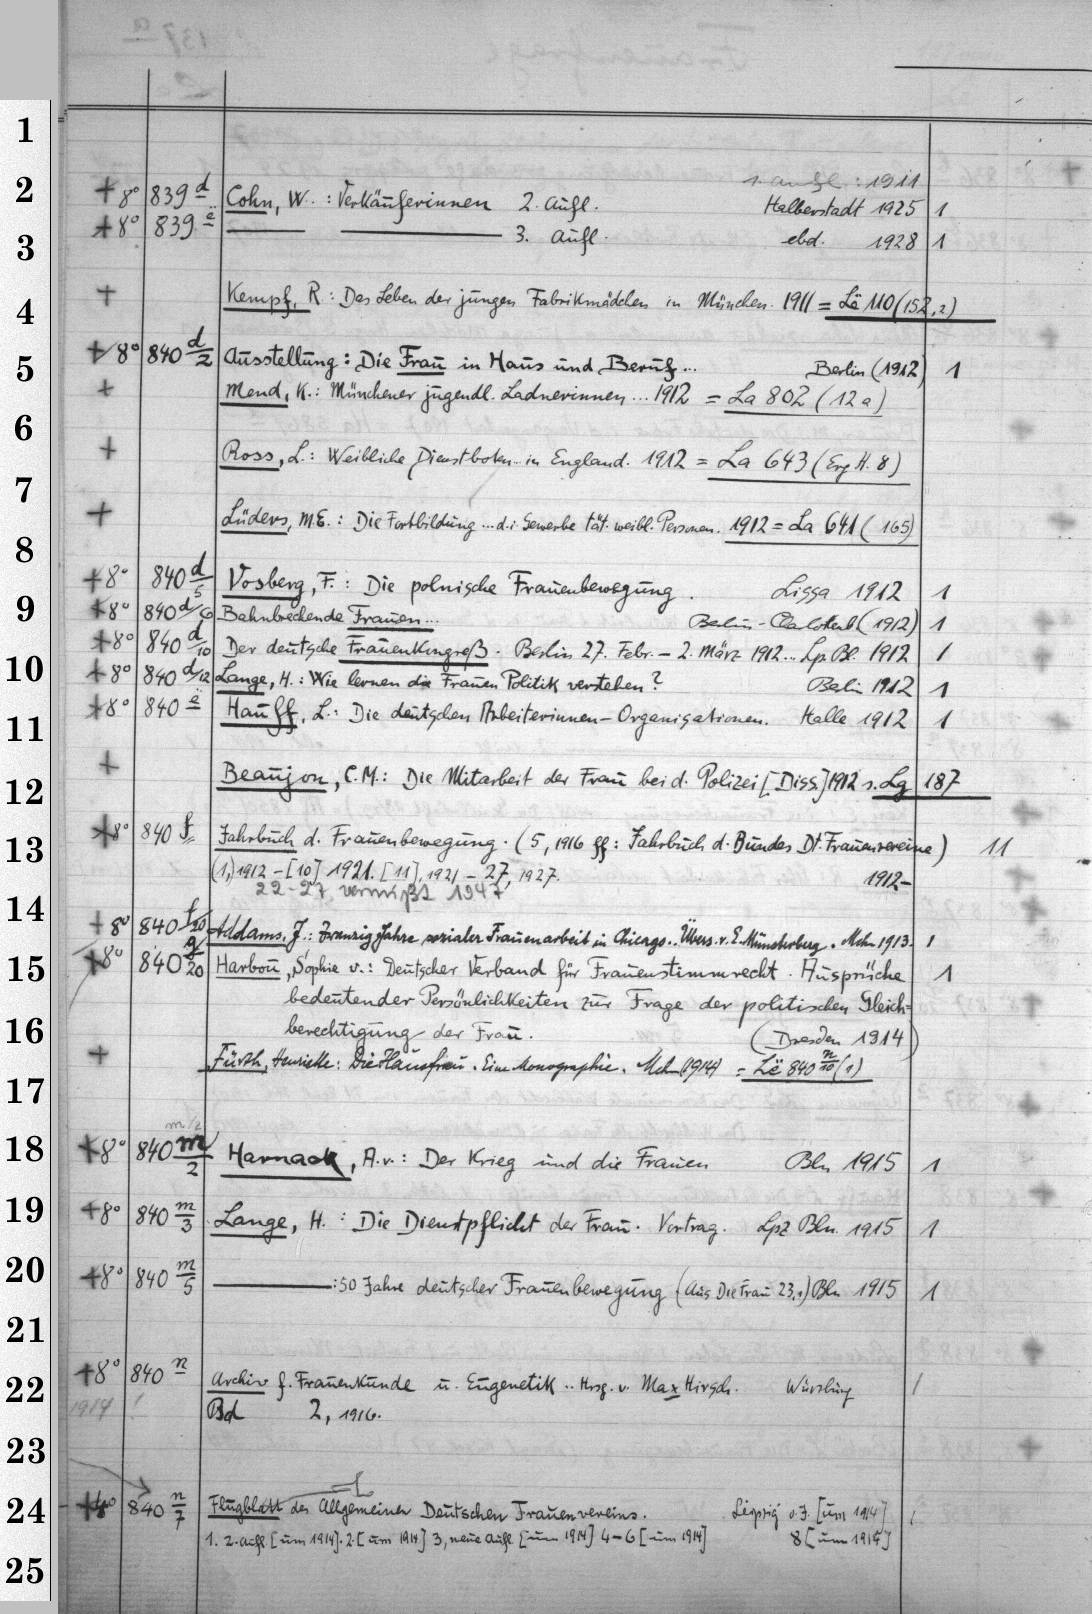 137 a
Frauenfrage
1
1. Aufl.: 1911
2
+ 8° 839 d Cohn, W.: Verkäuferinnen 2. Aufl. Halberstadt 1925 1
+ 8° 839 e 3. Aufl. ebd. 1928 1
3
+ Kempf, R.: Das Leben der jungen Fabrikmädchen in München. 1911 = Lë 110 (152,2)
4
+ 8° 840 d/2 Ausstellung: Die Frau in Haus und Beruf... Berlin (1912) 1
5
+ Mend, K.: Münchener jugendl. Ladnerinnen... 1912 = La 802 (12a)
6
+ Ross, L.: Weibliche Dienstboten.. in England. 1912 = La 643 (Erg H. 8)
7
+ Lüders, M.E.: Die Fortbildung ... d. i. Gewerbe tät. weibl. Personen. 1912 = La 641 (165)
8
+ 8° 840 d/5 Vosberg, F.: Die polnische Frauenbewegung. Lissa 1912 1
9
+ 8° 840 d/6 Bahnbrechende Frauen... Berlin-Charlottenb (1912) 1
+ 8° 840 d/10 Der deutsche Frauenkongreß. Berlin 27. Febr. – 2. März 1912... Lpz Bl. 1912 1
10
+ 8° 840 d/12 Lange, H.: Wie lernen die Frauen Politik verstehen? Berlin 1912 1
+ 8° 840 e Hauff, L.: Die deutschen Arbeiterinnen-Organisationen. Halle 1912 1
11
+ Beaujon, C.M.: Die Mitarbeit der Frau bei d. Polizei [Diss.] 1912 s. Lg 187
12
+ 8° 840 f Jahrbuch d. Frauenbewegung. (5, 1916 ff: Jahrbuch d. Bundes Dt. Frauenvereine) 11
13
(1,) 1912 – [10] 1921. [11], 1921 – 27, 1927. 1912–
22-27 vermißt 1947
14
+ 8° 840 f/20 Addams, J.: Zwanzig Jahre sozialer Frauenarbeit in Chicago. Übers. v. E. Münsterberg. Mchn 1913. 1
15
+ 8° 840 g/20 Harbou, Sophie v.: Deutscher Verband für Frauenstimmrecht. Aussprüche 1
bedeutender Persönlichkeiten zur Frage der politischen Gleich-
16
berechtigung der Frau. (Dresden 1914)
+ Fürth, Henriette: Die Hausfrau. Eine Monographie. Mchn (1914) = Lë 840 n/10 (1)
17
m/2
18
+ 8° 840 m/2 Harnack, A.v.: Der Krieg und die Frauen Bln 1915 1
19
+ 8° 840 m/3 Lange, H.: Die Dienstpflicht der Frau. Vortrag. Lpz Bln. 1915 1
20
+ 8° 840 m/5 : 50 Jahre deutscher Frauenbewegung (Aus Die Frau 23,1) Bln 1915 1
21
+ 8° 840 n Archiv f. Frauenkunde u. Eugenetik.. Hrsg. v. Max Hirsch. Würzburg 1
22
1914 ! Bd 2, 1916.
23
24
+ 8° 840 n/7 Flugblatt des Allgemeinen Deutschen Frauenvereins. Leipzig o.J. [um 1914] 1
1. 2. Aufl. [um 1914]. 2. [um 1914] 3, neue Aufl. [um 1914] 4–6 [um 1914] 8 [um 1914]
25